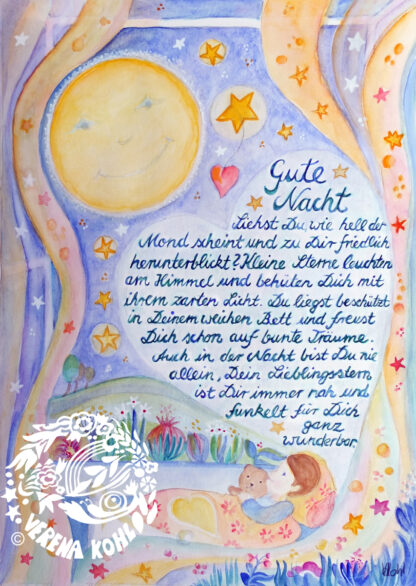 Gute
Nacht
Siehst Du, wie hell der
Mond scheint und zu Dir friedlich
herunterblickt? Kleine Sterne leuchten
am Himmel und behüten Dich mit
ihrem zarten Licht. Du liegst beschützt
in Deinem weichen Bett und freust
Dich schon auf bunte Träume.
Auch in der Nacht bist Du nie
allein, Dein Lieblingsstern
ist Dir immer nah und
funkelt für Dich
ganz
wunderbar.
© VERENA KOHL